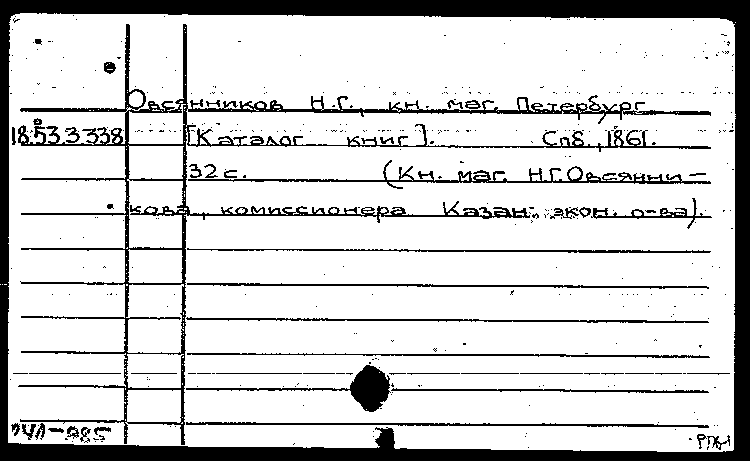 Овсянников Н.Г., кн. маг. Петербург
18.53.3.338 [Каталог книг]. Спб., 1861.
32 с. (Кн. маг. Н.Г. Овсянни-
кова, комиссионера Казан. экон. о-ва).